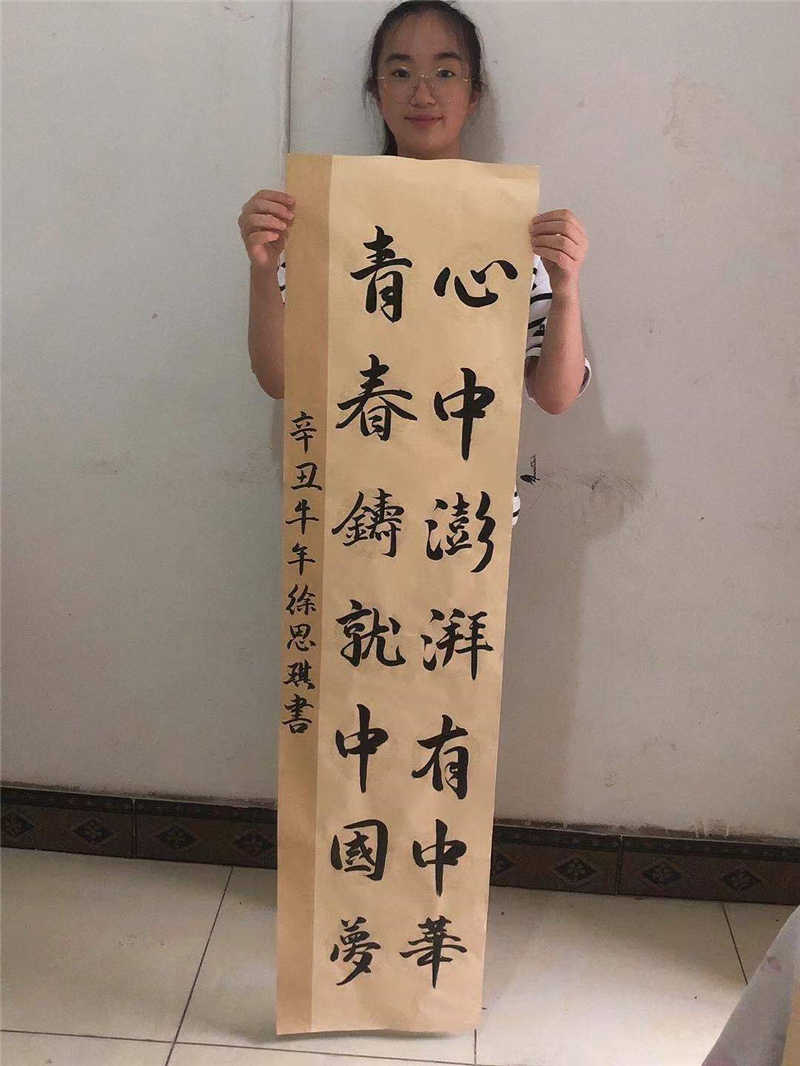 心中澎湃有中華
青春鑄就中國夢
辛丑牛年徐思琪書